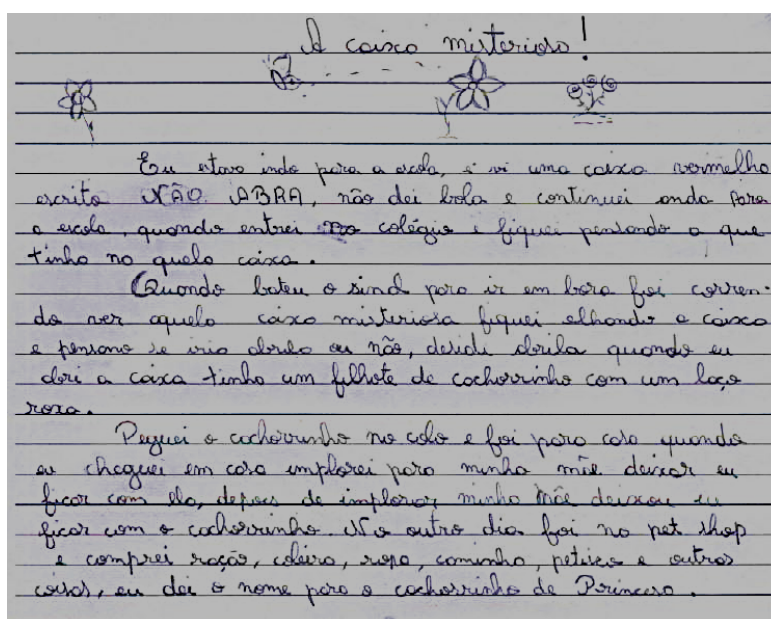 A caixa misteriosa!
Eu estava indo para a escola, e vi uma caixa vermelha
escrito NÃO ABRA, não dei bola e continuei anda para
a escola, quando entrei no colégio e fiquei pensando o que
tinha na quela caixa.
Quando bateu o sinal para ir em bora foi corren-
do ver aquela caixa misteriosa fiquei olhando a caixa
e pensano se iria abrila ou não, desidi abrila quando eu
abri a caixa tinha um filhote de cachorrinho com um laço
roxa.
Peguei o cachorrinho no colo e foi para casa quando
eu cheguei em casa implorei para minha mãe deixar eu
ficar com ela, depois de implorar minha mãe deixou eu
ficar com o cachorrinho. No outro dia foi no pet shop
e comprei ração, coleira, ropa, caminha, petisco e outras
coisas, eu dei o nome para o cachorrinho de Princesa.